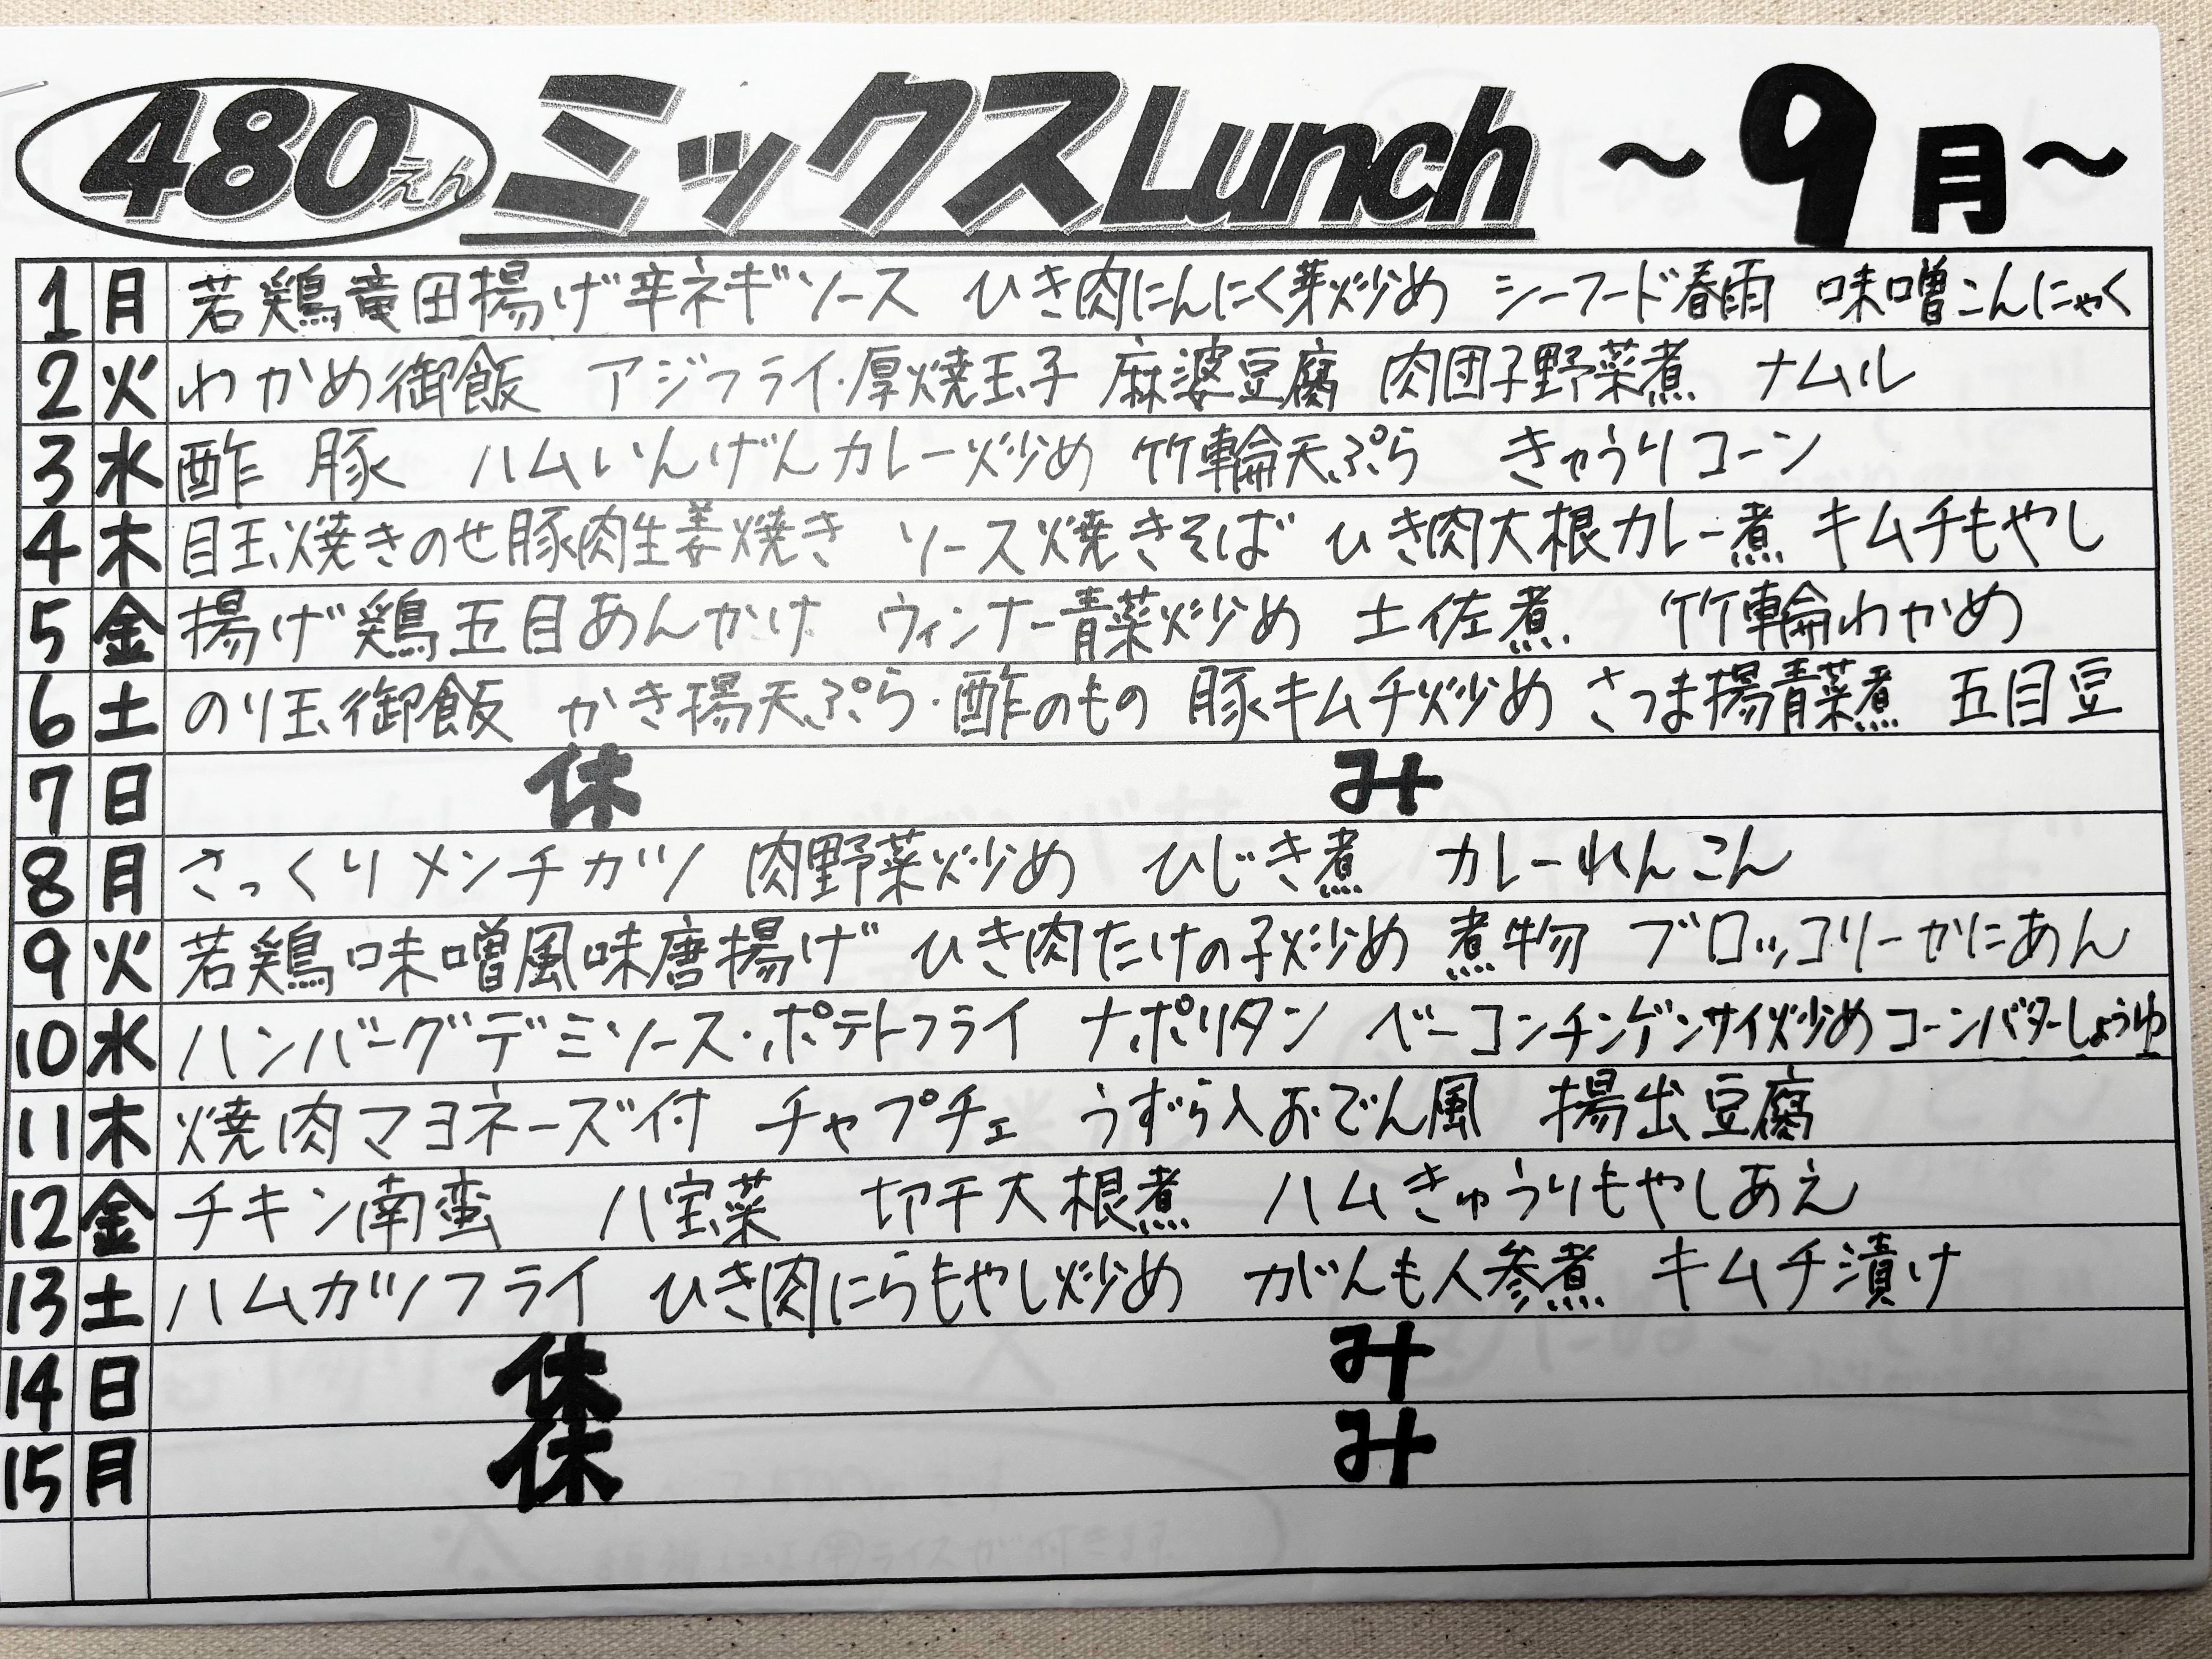 480えん ミックスLunch ～9月～
1 月 若鶏竜田揚げ辛ネギソース ひき肉にんにく芽炒め シーフード春雨 味噌こんにゃく
2 火 わかめ御飯 アジフライ・厚焼玉子 麻婆豆腐 肉団子野菜煮 ナムル
3 水 酢豚 ハムいんげんカレー炒め 竹輪天ぷら きゅうりコーン
4 木 目玉焼きのせ豚肉生姜焼き ソース焼きそば ひき肉大根カレー煮 キムチもやし
5 金 揚げ鶏五目あんかけ ウィンナー青菜炒め 土佐煮 竹輪わかめ
6 土 のり玉御飯 かき揚天ぷら・酢のもの 豚キムチ炒め さつま揚青菜煮 五目豆
7 日 休み
8 月 さっくりメンチカツ 肉野菜炒め ひじき煮 カレーれんこん
9 火 若鶏味噌風味唐揚げ ひき肉たけの子炒め 煮物 ブロッコリーかにあん
10 水 ハンバーグデミソース・ポテトフライ ナポリタン ベーコンチンゲンサイ炒め コーンバターしょうゆ
11 木 焼肉マヨネーズ付 チャプチェ うずら入おでん風 揚出豆腐
12 金 チキン南蛮 八宝菜 切干大根煮 ハムきゅうりもやしあえ
13 土 ハムカツフライ ひき肉にらもやし炒め がんも人参煮 キムチ漬け
14 日 休み
15 月 休み